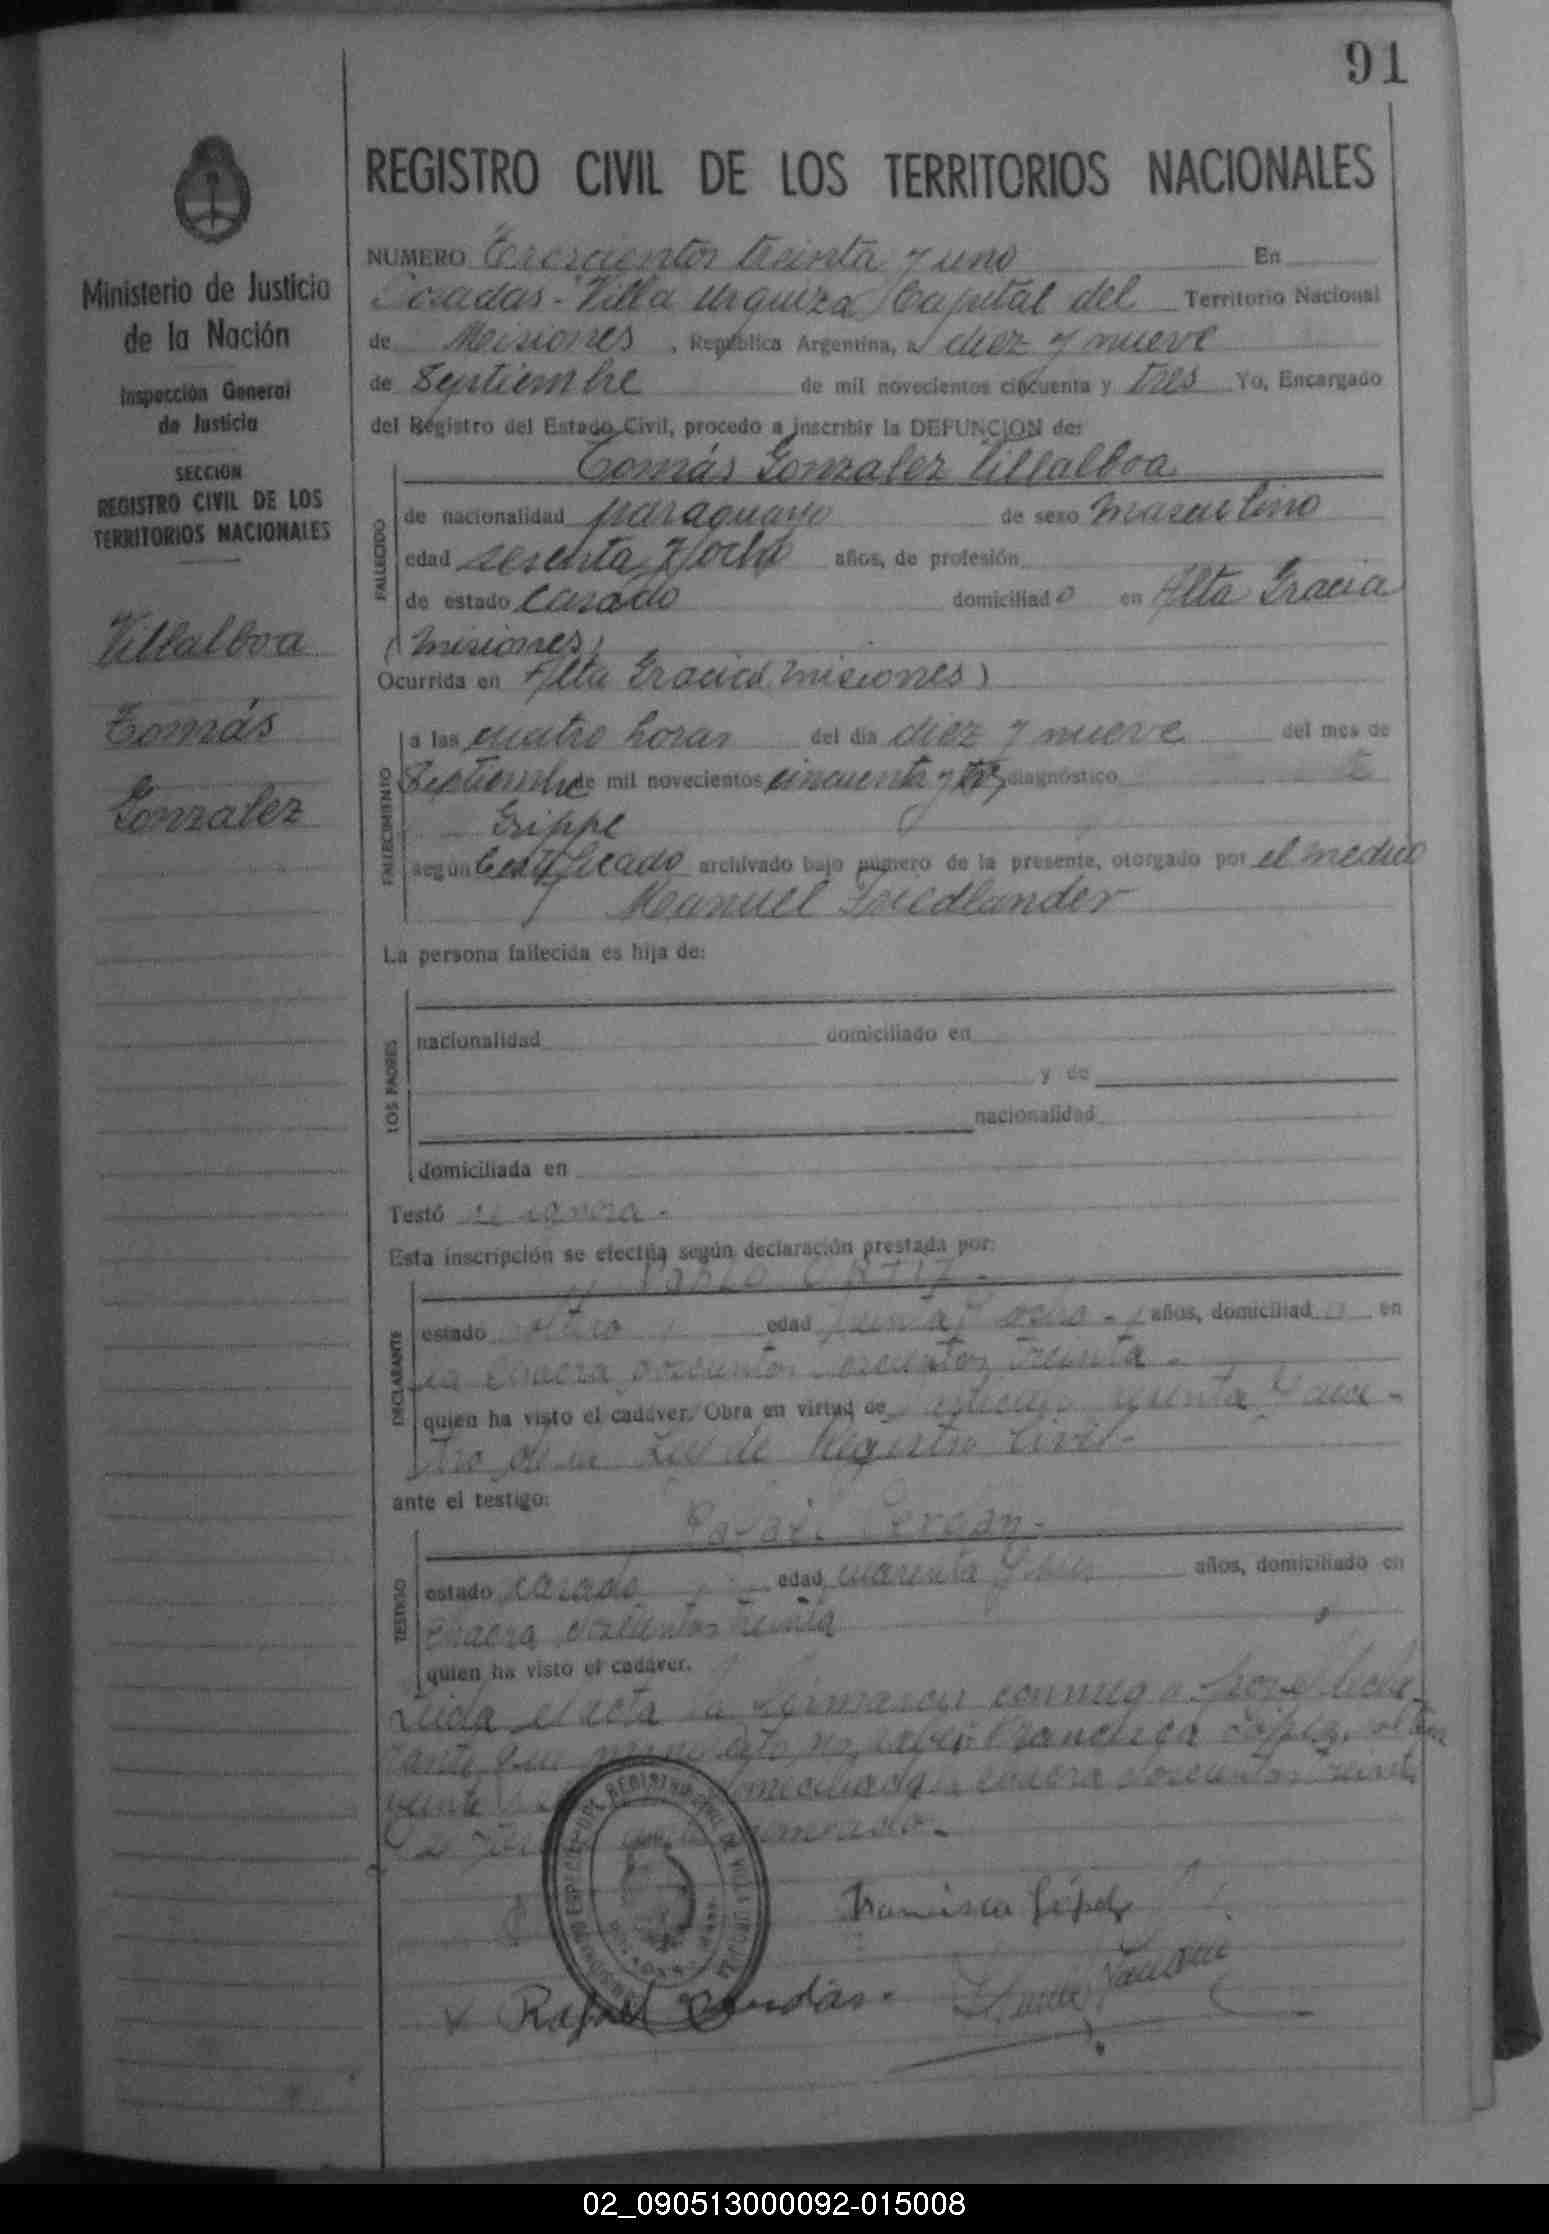 91
REGISTRO CIVIL DE LOS TERRITORIOS NACIONALES
Ministerio de Justicia
de la Nación
Inspección General
de Justicia
SECCION
REGISTRO CIVIL DE LOS
TERRITORIOS NACIONALES
Villalboa
Tomás
Gonzalez
NUMERO Trescientos treinta y uno En
Posadas - Villa Urquiza Capital del Territorio Nacional
de Misiones, República Argentina, a diez y nueve
de Septiembre de mil novecientos cincuenta y tres Yo, Encargado
del Registro del Estado Civil, procedo a inscribir la DEFUNCION de:
Tomás Gonzalez Villalboa
FALLECIDO
de nacionalidad paraguayo de sexo masculino
edad sesenta y ocho años, de profesión
de estado casado domiciliado en Alta Gracia
(Misiones)
Ocurrida en Alta Gracia (Misiones)
FALLECIMIENTO
a las cuatro horas del día diez y nueve del mes de
Septiembre de mil novecientos cincuenta y tres, diagnóstico
Grippe
según Certificado archivado bajo número de la presente, otorgado por el medico
Manuel Friedlander
La persona fallecida es hija de:
LOS PADRES
nacionalidad domiciliado en
y de
nacionalidad
domiciliada en
Testó se ignora.-
Esta inscripción se efectúa según declaración prestada por:
ORTIZ -
DECLARANTE
estado soltero edad treinta y ocho - años, domiciliado en
la chacra doscientos treinta -
quien ha visto el cadáver. Obra en virtud de artículo sesenta y cua-
tro de la Ley de Registro Civil-
ante el testigo:
TESTIGO
estado casado edad cuarenta y años, domiciliado en
chacra doscientos treinta
quien ha visto el cadáver.
Leida el acta la firmaron conmigo por el decla-
rante que no saber Francisca López,
domiciliada chacra doscientos treinta
REGISTRO CIVIL DE VILLA URQUIZA
Francisca López
Rafael
02_090513000092-015008